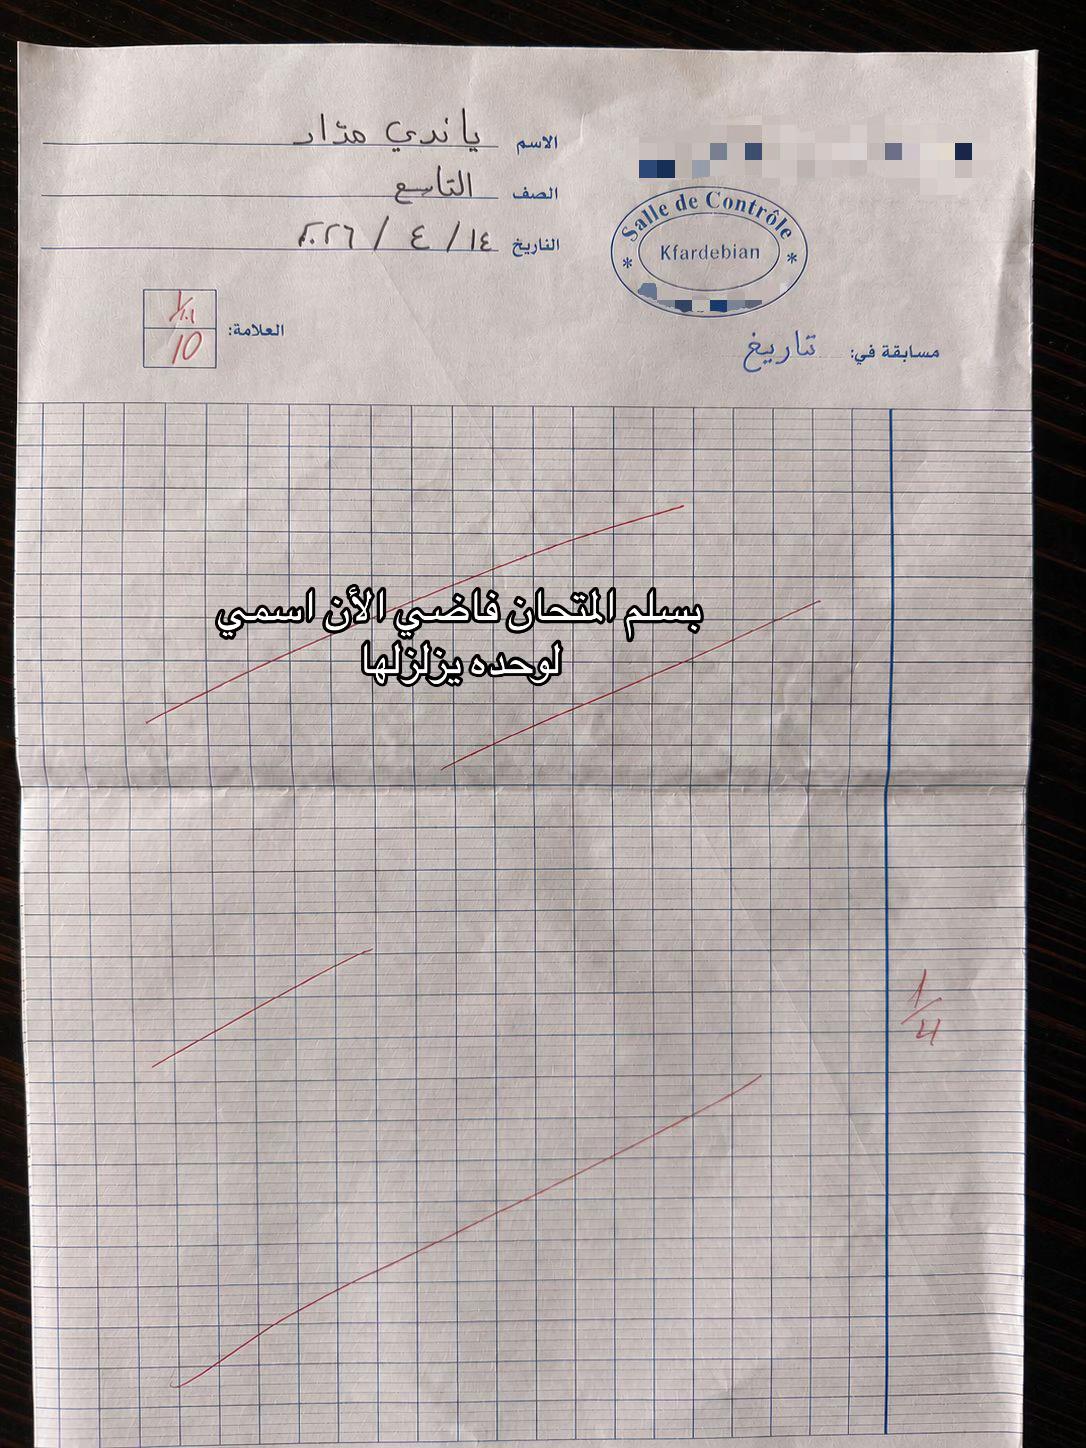 الاسم ياندي مرّار
الصف التاسع
التاريخ ١٤ / ٤ / ٢٠٢٦
Salle de Contrôle
Kfardebian
العلامة:
10
مسابقة في: تاريخ
بسلم المتحان فاضي الأن اسمي
لوحده يزلزلها
1/4